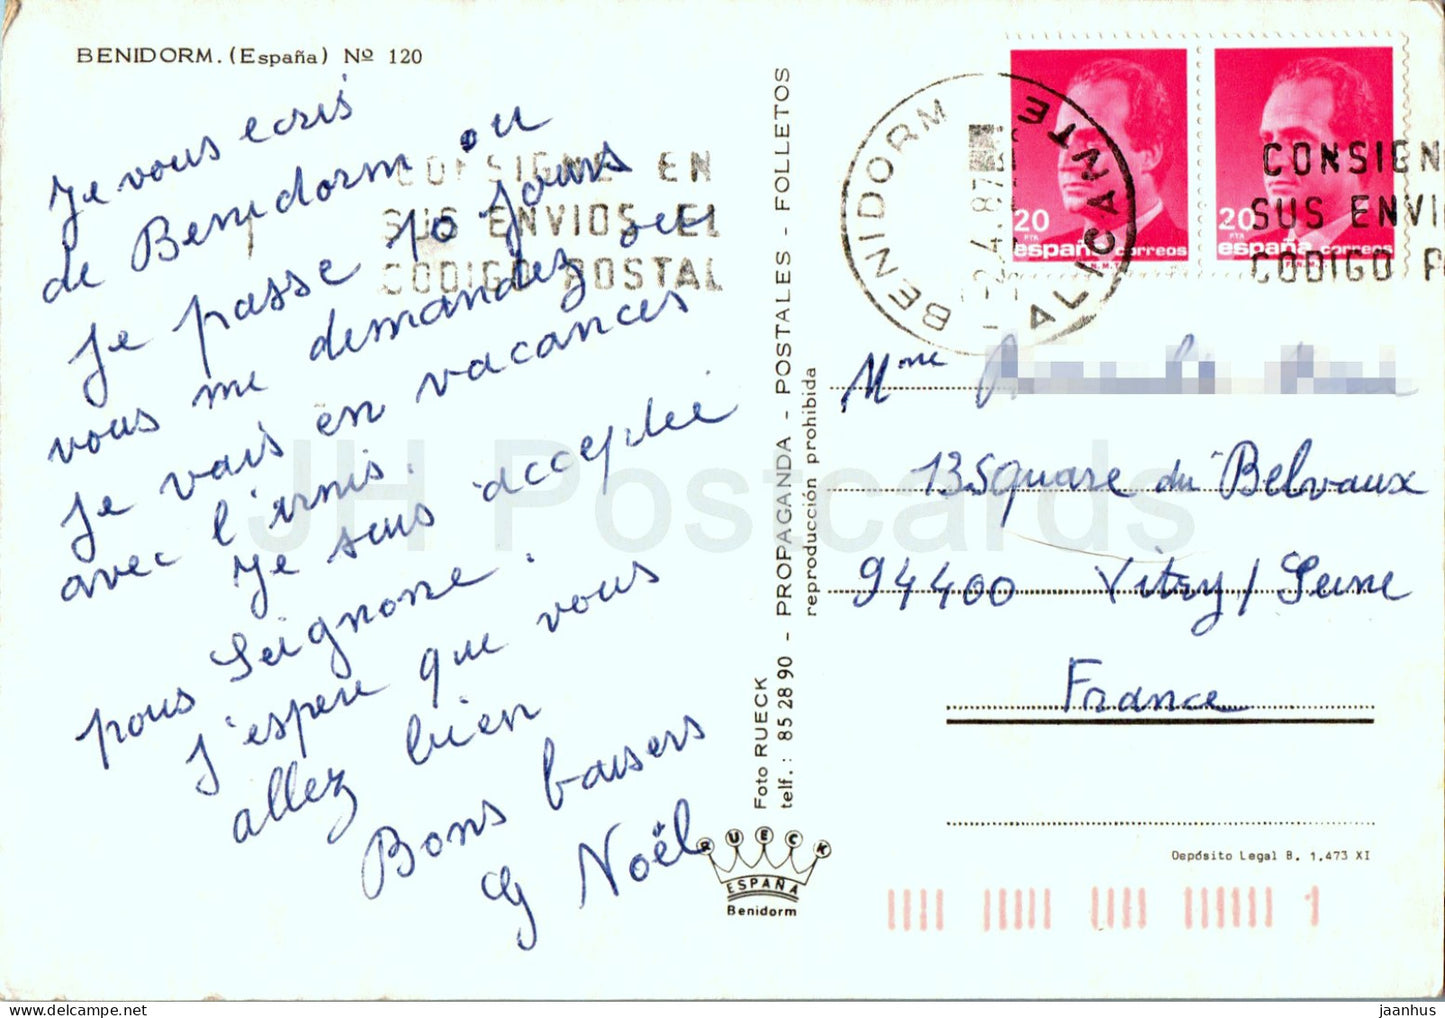 BENIDORM. (España) Nº 120
Je vous ecris
de Benidorm ou
Je passe 10 jours
vous me demandez si
Je vais en vacances
avec l'irnis.
Je suis acceptée
pous Seignone.
J'espere que vous
allez bien
Bons baisers
G Noël
CONSIGNE EN
SUS ENVIOS EL
CODIGO POSTAL
Foto RUECK
telf.: 85 28 90 - PROPAGANDA - POSTALES - FOLLETOS
reproducción prohibida
RUECK
ESPAÑA
Benidorm
BENIDORM
ALICANTE
-2.4.87
20
PTA
españa correos
F.N.M.T.
20
PTA
españa correos
F.N.M.T.
CONSIGN
SUS ENVI
CODIGO P
Mme
13 Square du Belvaux
94400 Vitry / Seine
France
Depósito Legal B. 1.473 XI
1
JH Postcards
jaanhus